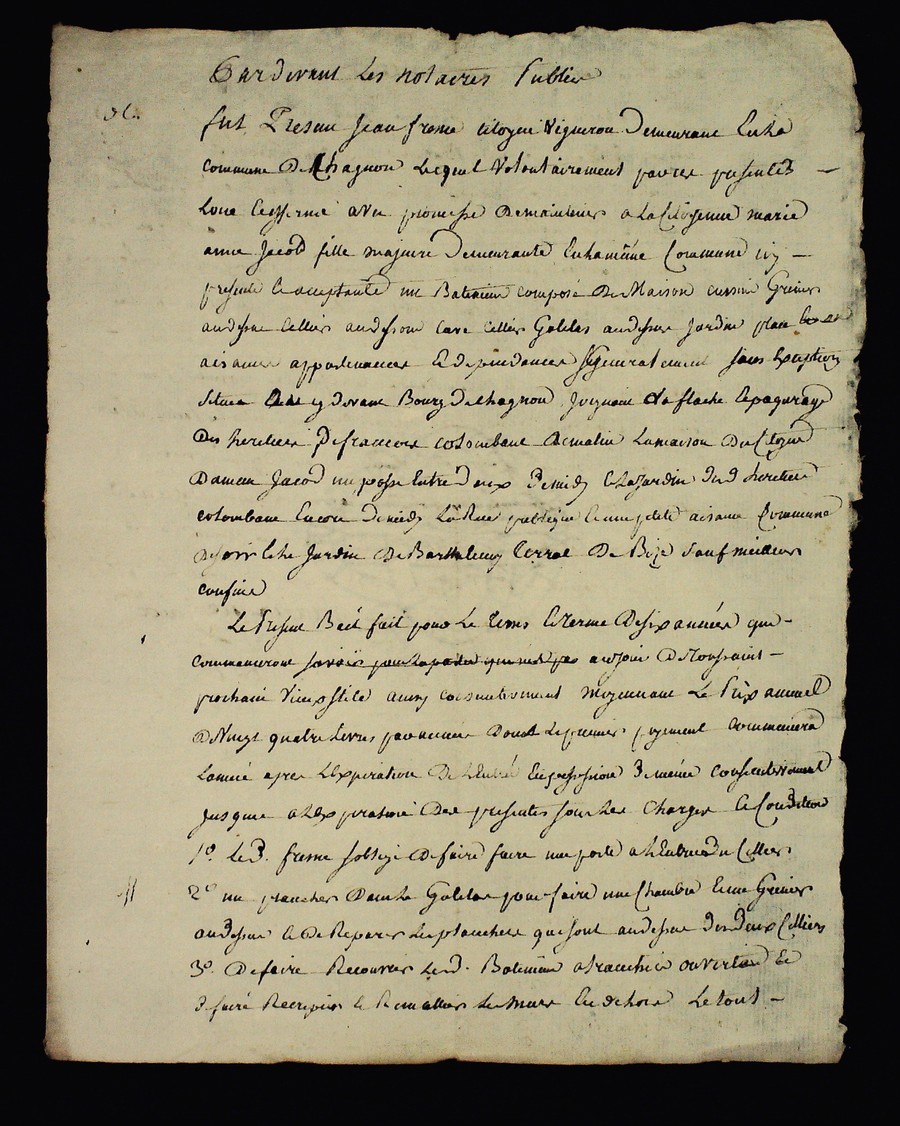 Pardevant Les notaires Publics
fut Present Jean frome citoyen Vigneron Demeurant En la
commune De Chagnon Lequel Volontairement par ces presentes
Loue et afferme avec promesse De maintenir a La Citoyenne marie
anne Jacod fille majeure Demeurante En la même Commune icy
presente et acceptante un Batiment composé De Maison cuisine Grenier
audessus Cellier audessous cave Cellier Galetas audessus Jardin place
aisances appartenances et dependances Generalement sans Exception
Situés cy devant Bourg De Chagnon Joignant
Des heritiers De francois colombant De matin La maison Du Citoyen
Damien Jacod un passe Entre Deux De midy et Le Jardin Desd heritiers
colombant Encore De midy La Rue publique et une petite aisance Commune
De soir et Le Jardin De Barthelemy Terrat De Bize Sauf meilleurs
confins
Le Present Bail fait pour Le tems et terme De six années qui
commenceront au jour De Toussaint
prochain Vieux stile ainsy consecutivement moyennant Le Prix annuel
De Vingt quatre Livres par année Dont Le premier payement commencera
L'année apres L'Expiration De L'Entrée En possession De même consecutivement
Jusques a L'Expiration Des presentes sous Les Charges et Conditions
1º. Led. frome s'oblige De faire faire une porte a L'Entrée Du Cellier
2º un plancher Dans Le Galetas pour faire une Chambre et un Grenier
audessus et De Reparer Les planchers qui sont audessus Des Deux Celliers
3º. De faire Recouvrir Led. Batiment a tranchée ouverte et
De faire Recrepir et Remailler Les murs En dehors Le tout